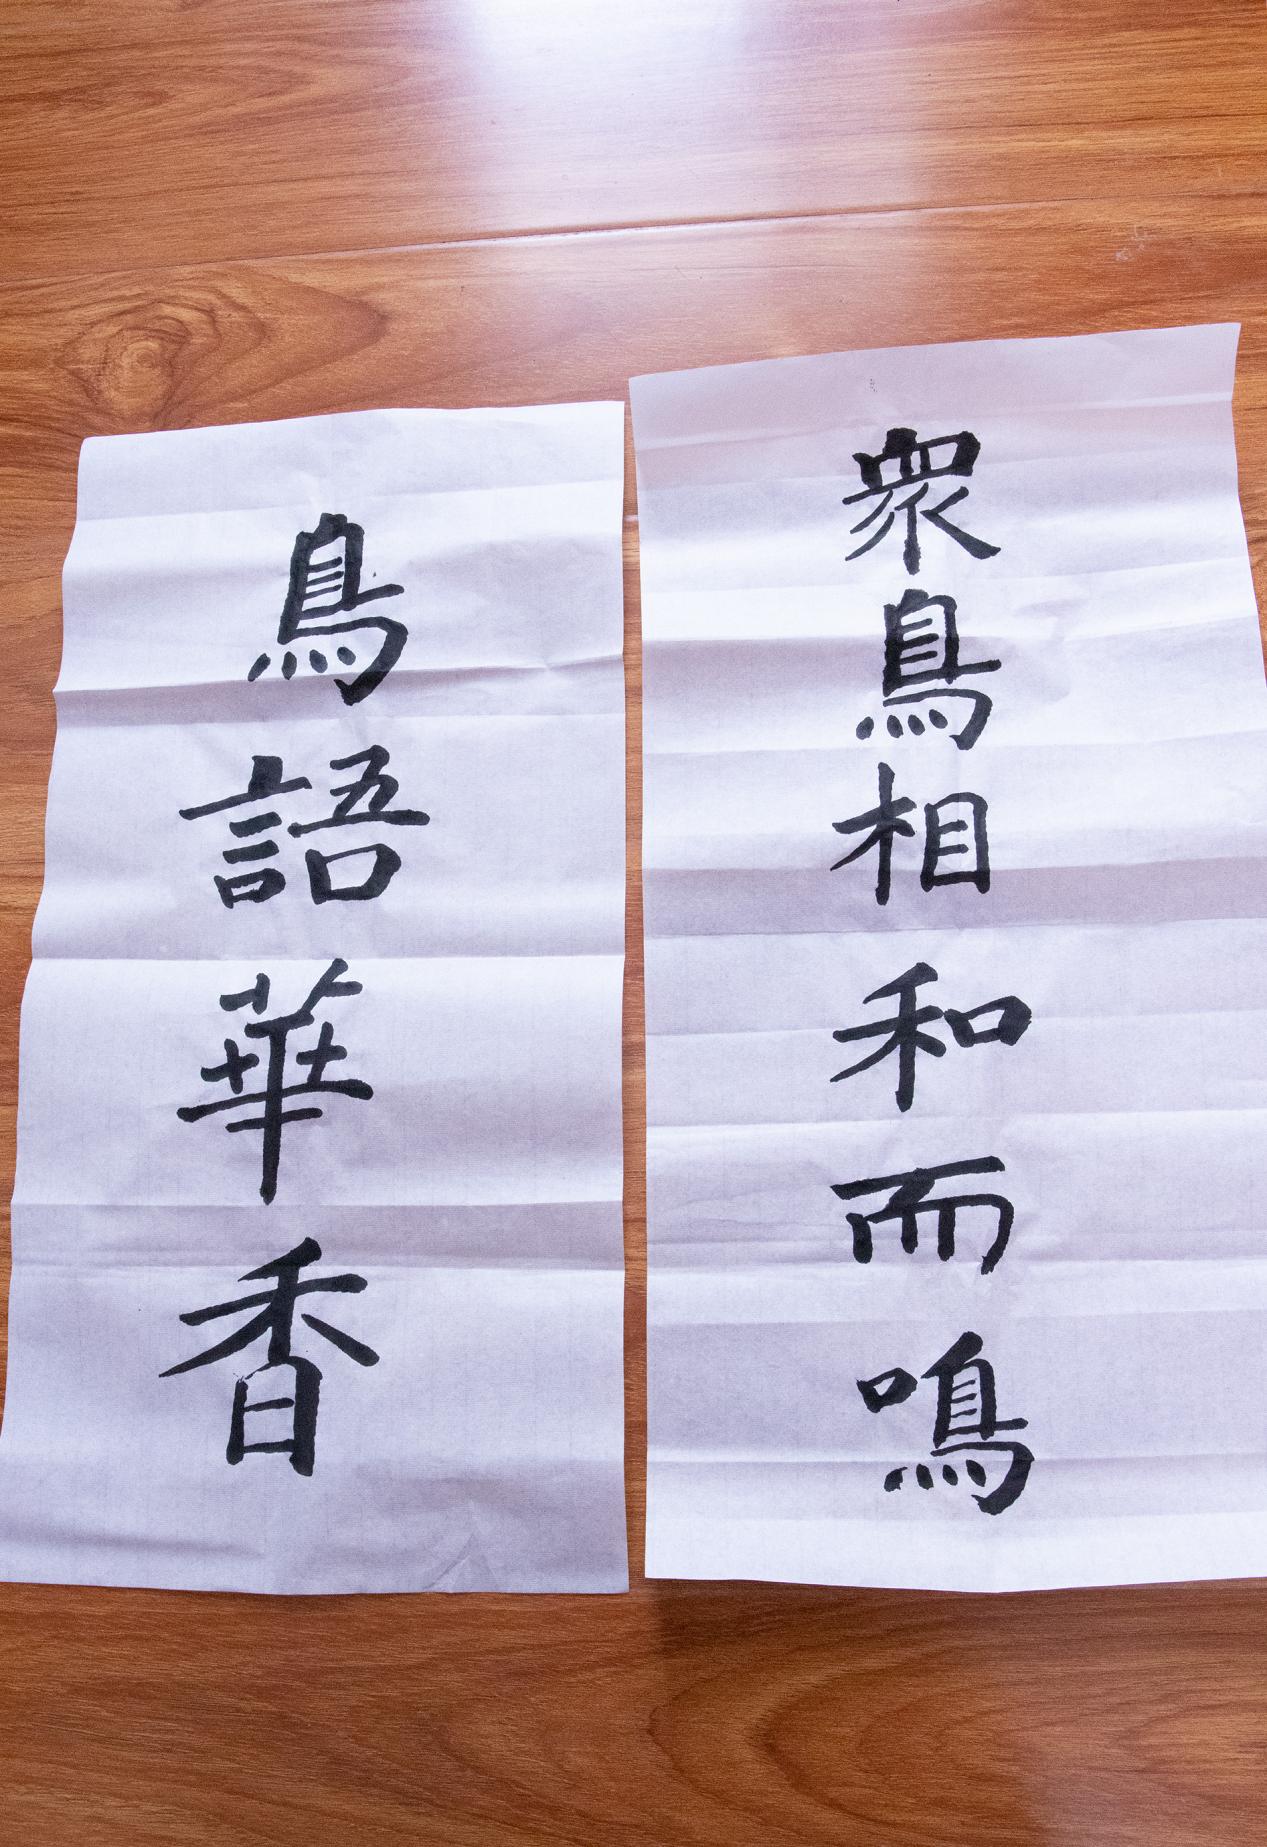 眾鳥相和而鳴
鳥語華香